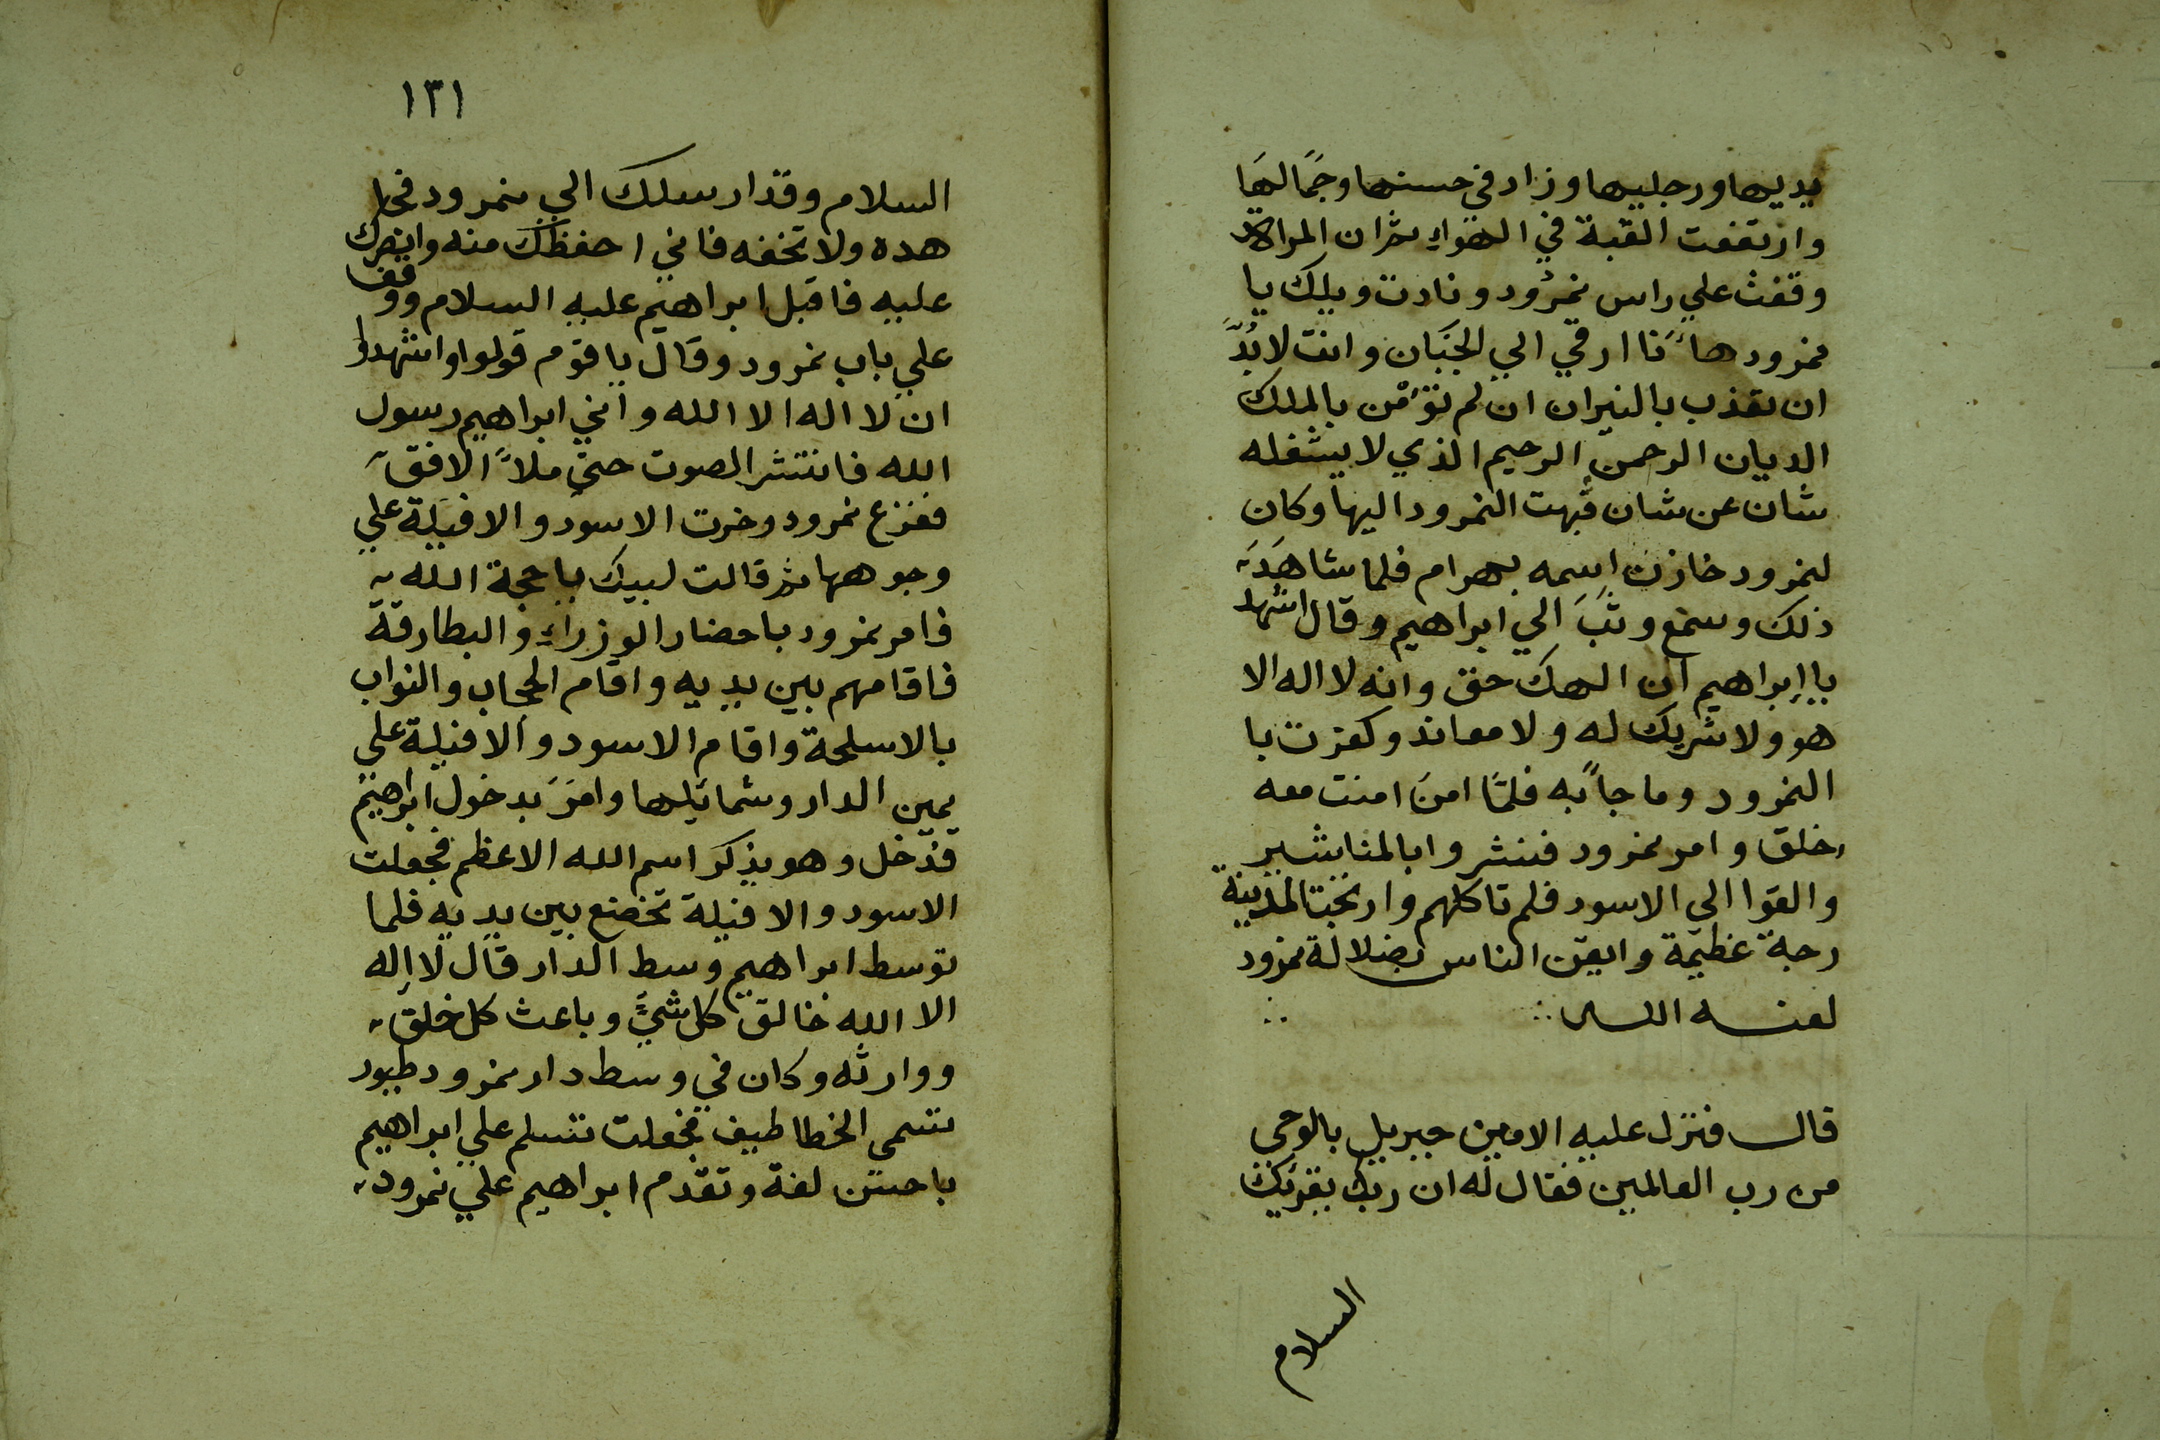 يديها ورجليها وزاد في حسنها وجمالها
وارتفعت القبة في الهواء ثم ان المراة
وقفت علي راس نمرود ونادت ويلك يا
نمرود ها انا ارقي الي الجنان وانت لا بد
ان تعذب بالنيران ان لم تؤمن بالملك
الديان الرحمن الرحيم الذي لا يشغله
شان عن شان فبهت النمرود اليها وكان
لنمرود خازن اسمه بهرام فلما شاهد
ذلك وسمع وثب الي ابراهيم وقال اشهد
يا ابراهيم ان الهك حق وانه لا اله الا
هو ولا شريك له ولا معاند وكفرت با
النمرود وما جا به فلما امن امنت معه
خلق وامر نمرود فنشروا بالمناشير
والقوا الي الاسود فلم تاكلهم وارتجت المدينة
رجة عظيمة وايقن الناس بضلالة نمرود
لعنه الله
قال فنزل عليه الامين جبريل بالوحي
من رب العالمين فقال له ان ربك يقريك
السلام
١٣١
السلام وقد ارسلك الي نمرود فجا
هده ولا تخفه فاني احفظك منه وانصرك
عليه فاقبل ابراهيم عليه السلام ووقف
علي باب نمرود وقال يا قوم قولوا واشهدوا
ان لا اله الا الله واني ابراهيم رسول
الله فانتشر الصوت حتي ملا الافق
ففزع نمرود وخرت الاسود والافيلة علي
وجوهها ثم قالت لبيك يا حجة الله
فامر نمرود باحضار الوزراء والبطارقة
فاقامهم بين يديه واقام الحجاب والنواب
بالاسلحة واقام الاسود والافيلة علي
يمين الدار وشمائلها وامر بدخول ابراهيم
فدخل وهو يذكر اسم الله الاعظم فجعلت
الاسود والافيلة تخضع بين يديه فلما
توسط ابراهيم وسط الدار قال لا اله
الا الله خالق كل شيء وباعث كل خلق
ووارثه وكان في وسط دار نمرود طيور
تسمى الخطاطيف فجعلت تسلم علي ابراهيم
باحسن لغة وتقدم ابراهيم علي نمرود